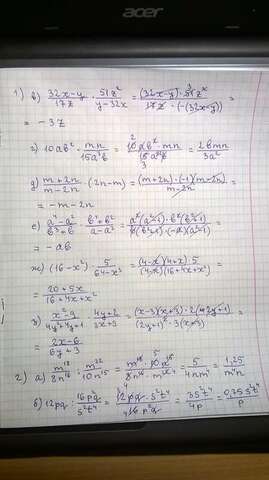 acer
1) в) \frac{32x-y}{17z} · \frac{51z²}{y-32x} = \frac{(32x-y)·51z²}{17z·(-(32x-y))} =
= -3z
г) 10ab² · \frac{mn}{15a³b} = \frac{10ab²·mn}{15a³b} = \frac{2bmn}{3a²}
д) \frac{m+2n}{m-2n} · (2n-m) = \frac{(m+2n)·(-1)(m-2n)}{m-2n} =
= -m-2n
е) \frac{a⁴-a²}{b³+b} · \frac{b⁴+b²}{a-a³} = \frac{a²(a²-1)·b²(b²+1)}{b(b²+1)·(-a)(a²-1)} =
= -ab
ж) (16-x²) · \frac{5}{64-x³} = \frac{(4-x)(4+x)·5}{(4-x)(16+4x+x²)} =
= \frac{20+5x}{16+4x+x²}
з) \frac{x²-9}{4y²+4y+1} · \frac{4y+2}{3x+9} = \frac{(x-3)(x+3)·2(2y+1)}{(2y+1)²·3(x+3)} =
= \frac{2x-6}{6y+3}
2) а) \frac{m^{18}}{8n^{16}} : \frac{m^{22}}{10n^{15}} = \frac{m^{18}·10n^{15}}{8n^{16}·m^{22}} = \frac{5}{4nm⁴} = \frac{1,25}{m⁴n}
б) 12pq : \frac{16pq}{s²t⁴} = \frac{12pq·s²t⁴}{16p²q} = \frac{3s²t⁴}{4p} = \frac{0,75s²t⁴}{p}